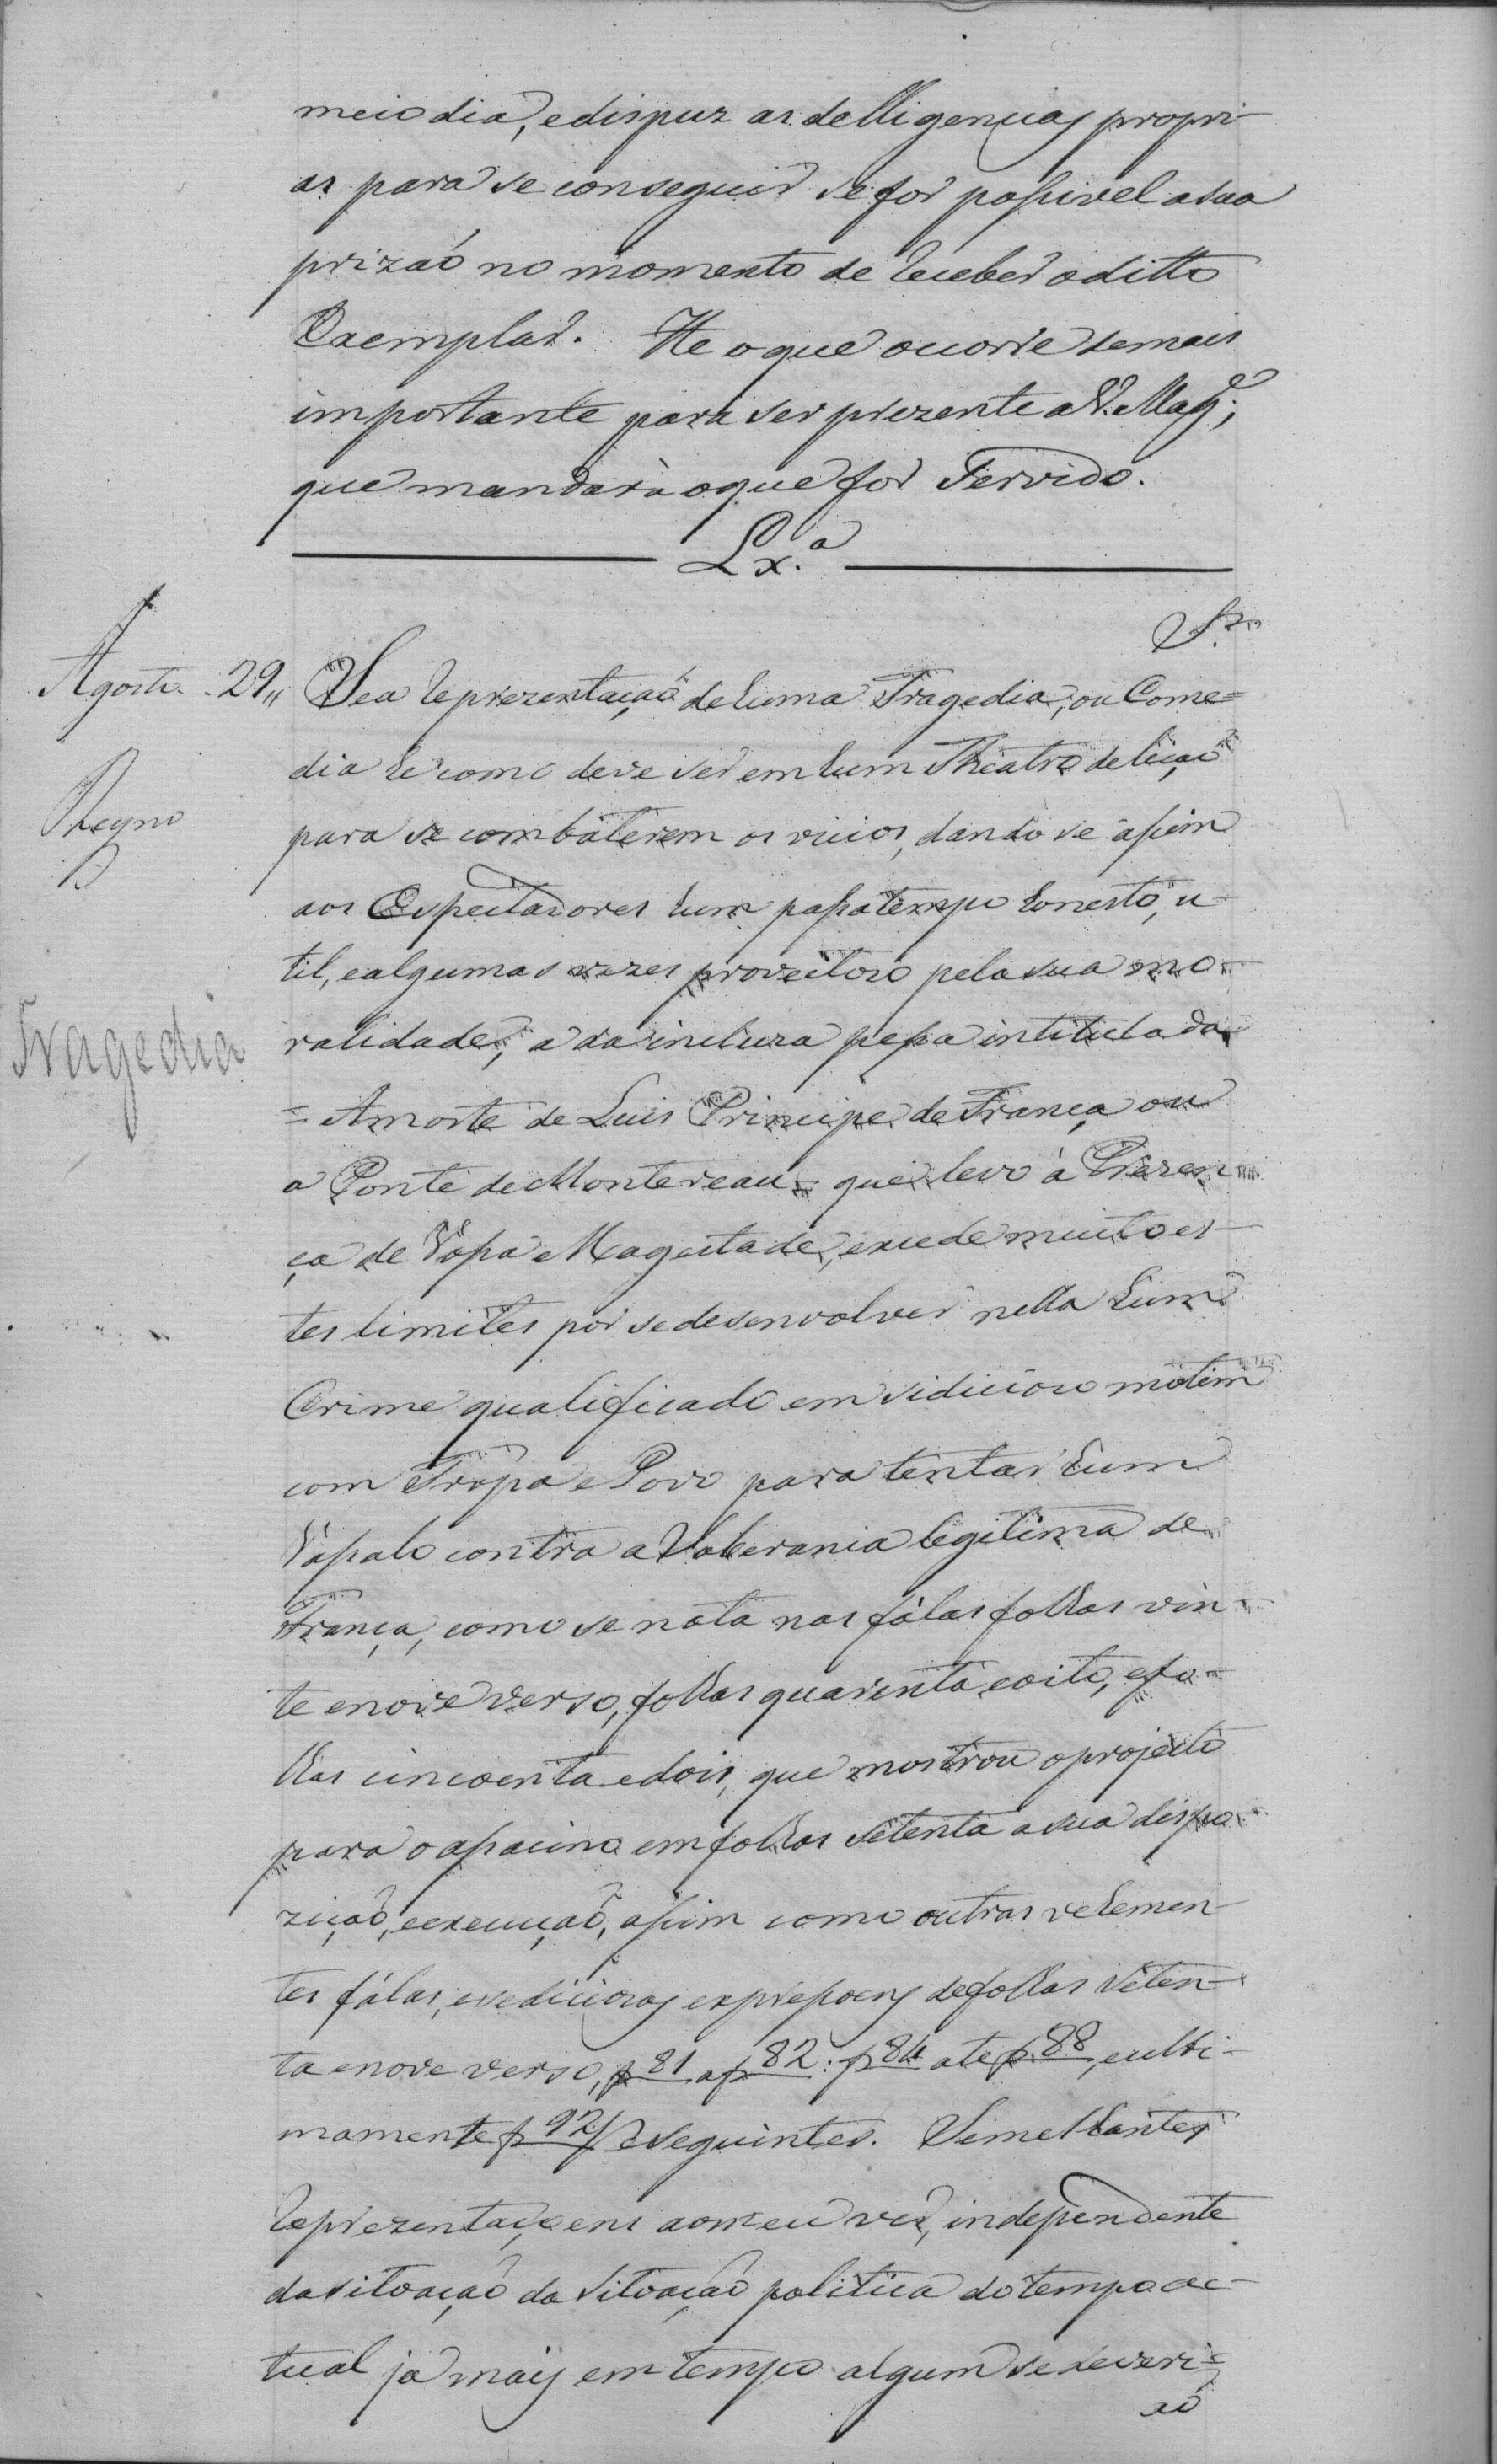 meio dia, e dispuz as delligencias propri-
as para se conseguir se for possivel a sua
prizaó no momento de receber o ditto
Exemplar. He o que ocorre de mais
importante para ser prezente a V. Mag.e;
que mandarà o que for Servido.
Lx.a
S.r
Agosto 29,, Se a reprezentaçaõ de huma Tragedia, ou Come=
dia he como deve ser em hum Theatro de liçaõ
Reyno
para se combaterem os vicios, dando se assim
aos Espectadores hum passatempo honesto, u-
til, e algumas vezes proveitozo pela sua mo-
Tragedia
ralidade; a da incluza pessa intitulada
= A morte de Luis Principe de França ou
a Ponte de Montereau = que levo à Prezen-
ça de Vossa Magestade, excede muito es-
tes limites por se desenvolver nella hum
Crime qualificado em sidiciozo motim
com Tropa e Povo para tentar hum
Vassalo contra a Soberania legitima de
França, como se nota nas fálas folhas vin-
te e nove verso, folhas quarenta e oito, e fo-
lhas cincoenta e dois, que mostrou o projecto
para o assacino em folhas setenta a sua dispo-
ziçaõ, e execuçaõ, assim como outras vehemen-
tes fálas, e sediciozas expressoens de folhas seten-
ta e nove verso, f 81 a f 82: f 84 ate f 88, e ulti-
mamente f 92 e seguintes. Semelhantes
reprezentaçoens ao meu ver, independente
da sitoaçaõ da sitoaçaõ politica do tempo ac-
tual ja mais em tempo algum se deveri=
aó